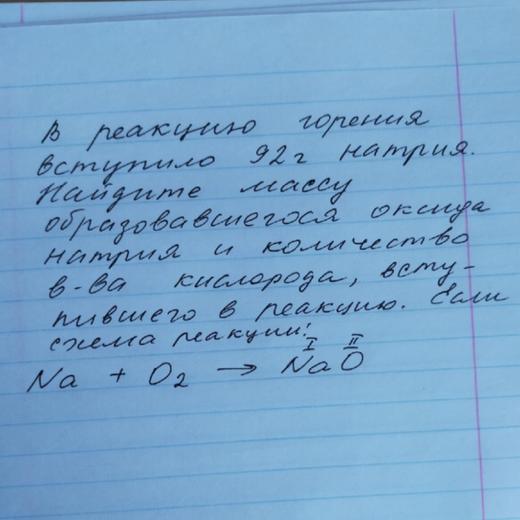 В реакцию горения
вступило 92г натрия.
Найдите массу
образовавшегося оксида
натрия и количество
в-ва кислорода, всту-
пившего в реакцию. Если
схема реакции:
I II
Na + O₂ → NaO